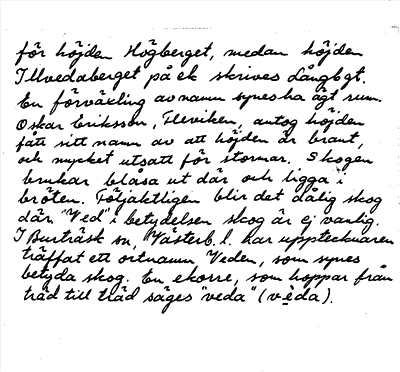 för höjden Högberget, medan höjden
Illvedaberget på ek skrives Långbgt.
En förväxling av namn synes ha ägt rum.
Oskar Eriksson, Fleviken, antog höjden
fått sitt namn av att höjden är brant,
och mycket utsatt för stormar. Skogen
brukar blåsa ut där och ligga i
bröten. Följaktligen blir det dålig skog
där. "Ved" i betydelsen skog är ej vanlig.
I Burträsk sn, Västerb. l. har upptecknaren
träffat ett ortnamn Veden, som synes
betyda skog. En ekorre, som hoppar från
träd till träd säges "veda" (vèda).